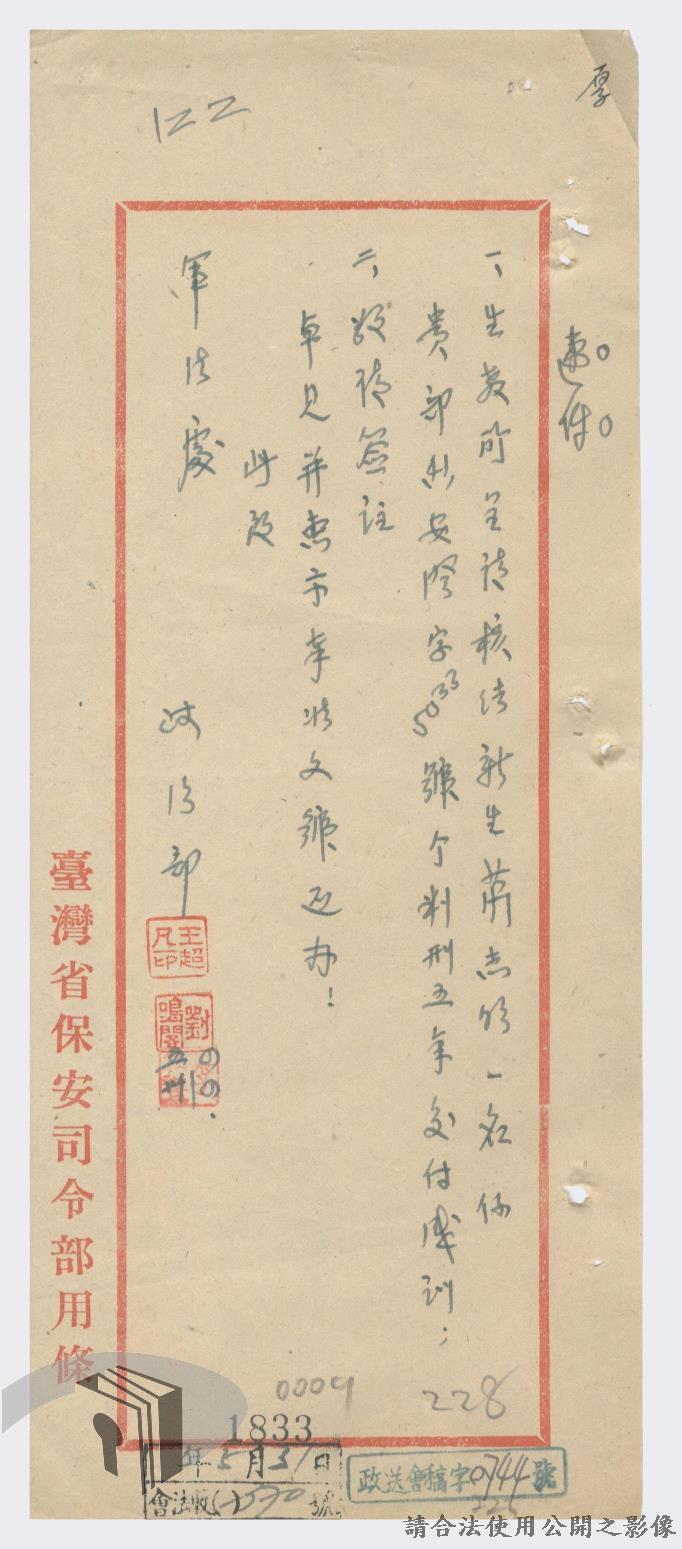 厚
122
速件
一、生教所呈請核結新生蕭志明一名係
貴部安
字5033號令判刑五年交付感訓;
二、敬請簽註
卓見并惠示本案文號近办!
此致
軍法處
政治部
王超凡印
劉鳴閣
臺灣省保安司令部用條
0009
228
1833
年5月31日
會法收( )
號
政送會稿字0744號
225
請合法使用公開之影像